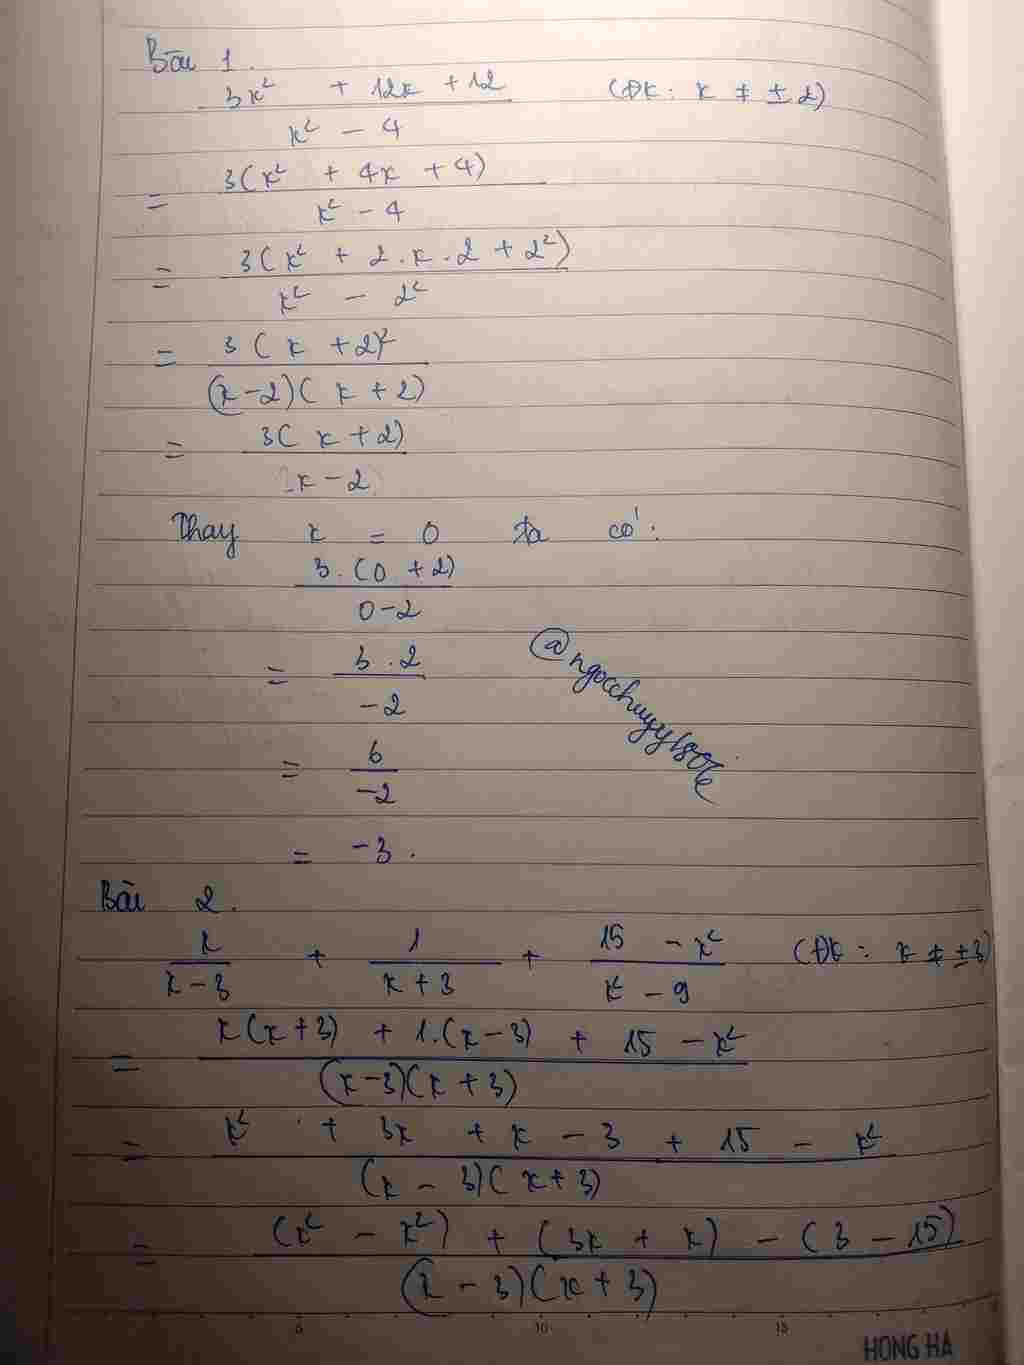 Bài 1.
3x² + 12x + 12 (ĐK: x ≠ ± 2)
x² - 4
= 3(x² + 4x + 4)
x² - 4
= 3(x² + 2.x.2 + 2²)
x² - 2²
= 3(x + 2)²
(x-2)(x + 2)
= 3(x + 2)
x - 2
Thay x = 0 ta có:
3.(0 + 2)
0-2
= 3.2
-2
= 6
-2
= -3.
Bài 2.
x + 1 + 15 - x² (ĐK: x ≠ ±3)
x - 3 x + 3 x² - 9
= x(x+3) + 1.(x-3) + 15 - x²
(x-3)(x+3)
= x² + 3x + x - 3 + 15 - x²
(x - 3)(x+3)
= (x² - x²) + (3x + x) - (3 - 15)
(x - 3)(x + 3)
5 10 15
HONG HA